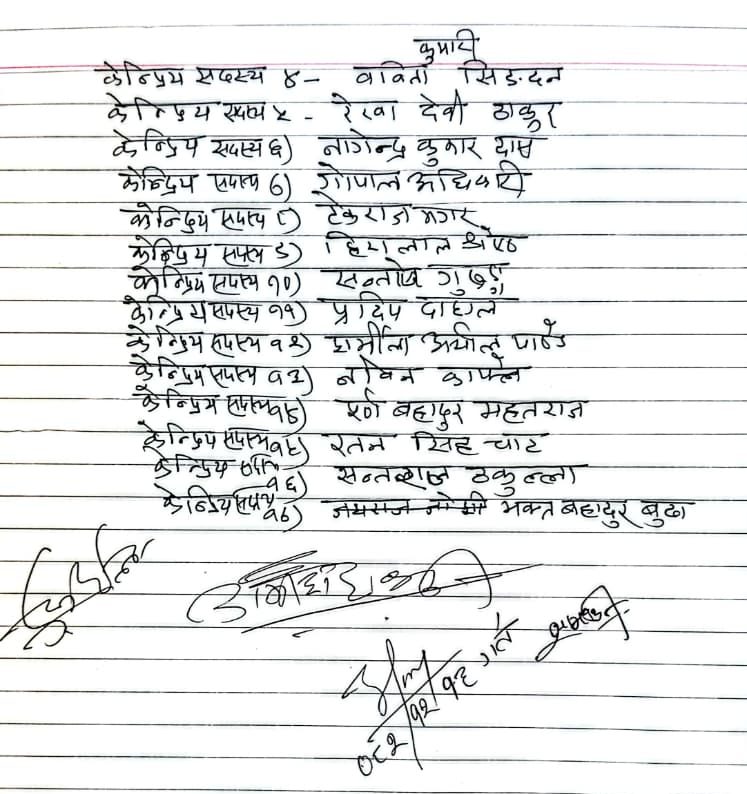 कुमारी
केन्द्रिय सदस्य ४- वविता सिङदन
केन्द्रिय सदस्य ५- रेखा देवी ठाकुर
केन्द्रिय सदस्य ६) नागेन्द्र कुमार दास
केन्द्रिय सदस्य ७) गोपाल अधिकारी
केन्द्रिय सदस्य ८) टेकराज मगर
केन्द्रिय सदस्य ९) हिरालाल श्रेष्ठ
केन्द्रिय सदस्य १०) सन्तोष गुरुङ
केन्द्रिय सदस्य ११) प्रदिप दाहाल
केन्द्रिय सदस्य १२) शर्मीला अर्याल पाण्डे
केन्द्रिय सदस्य १३) नविन काफ्ले
केन्द्रिय सदस्य १४) पूर्ण बहादुर महतराज
केन्द्रिय सदस्य १५) रतन सिंह चाँद
केन्द्रिय १६) ठकुल्ला
केन्द्रिय सदस्य १७) भक्त बहादुर बुढा
१२ १३ गते